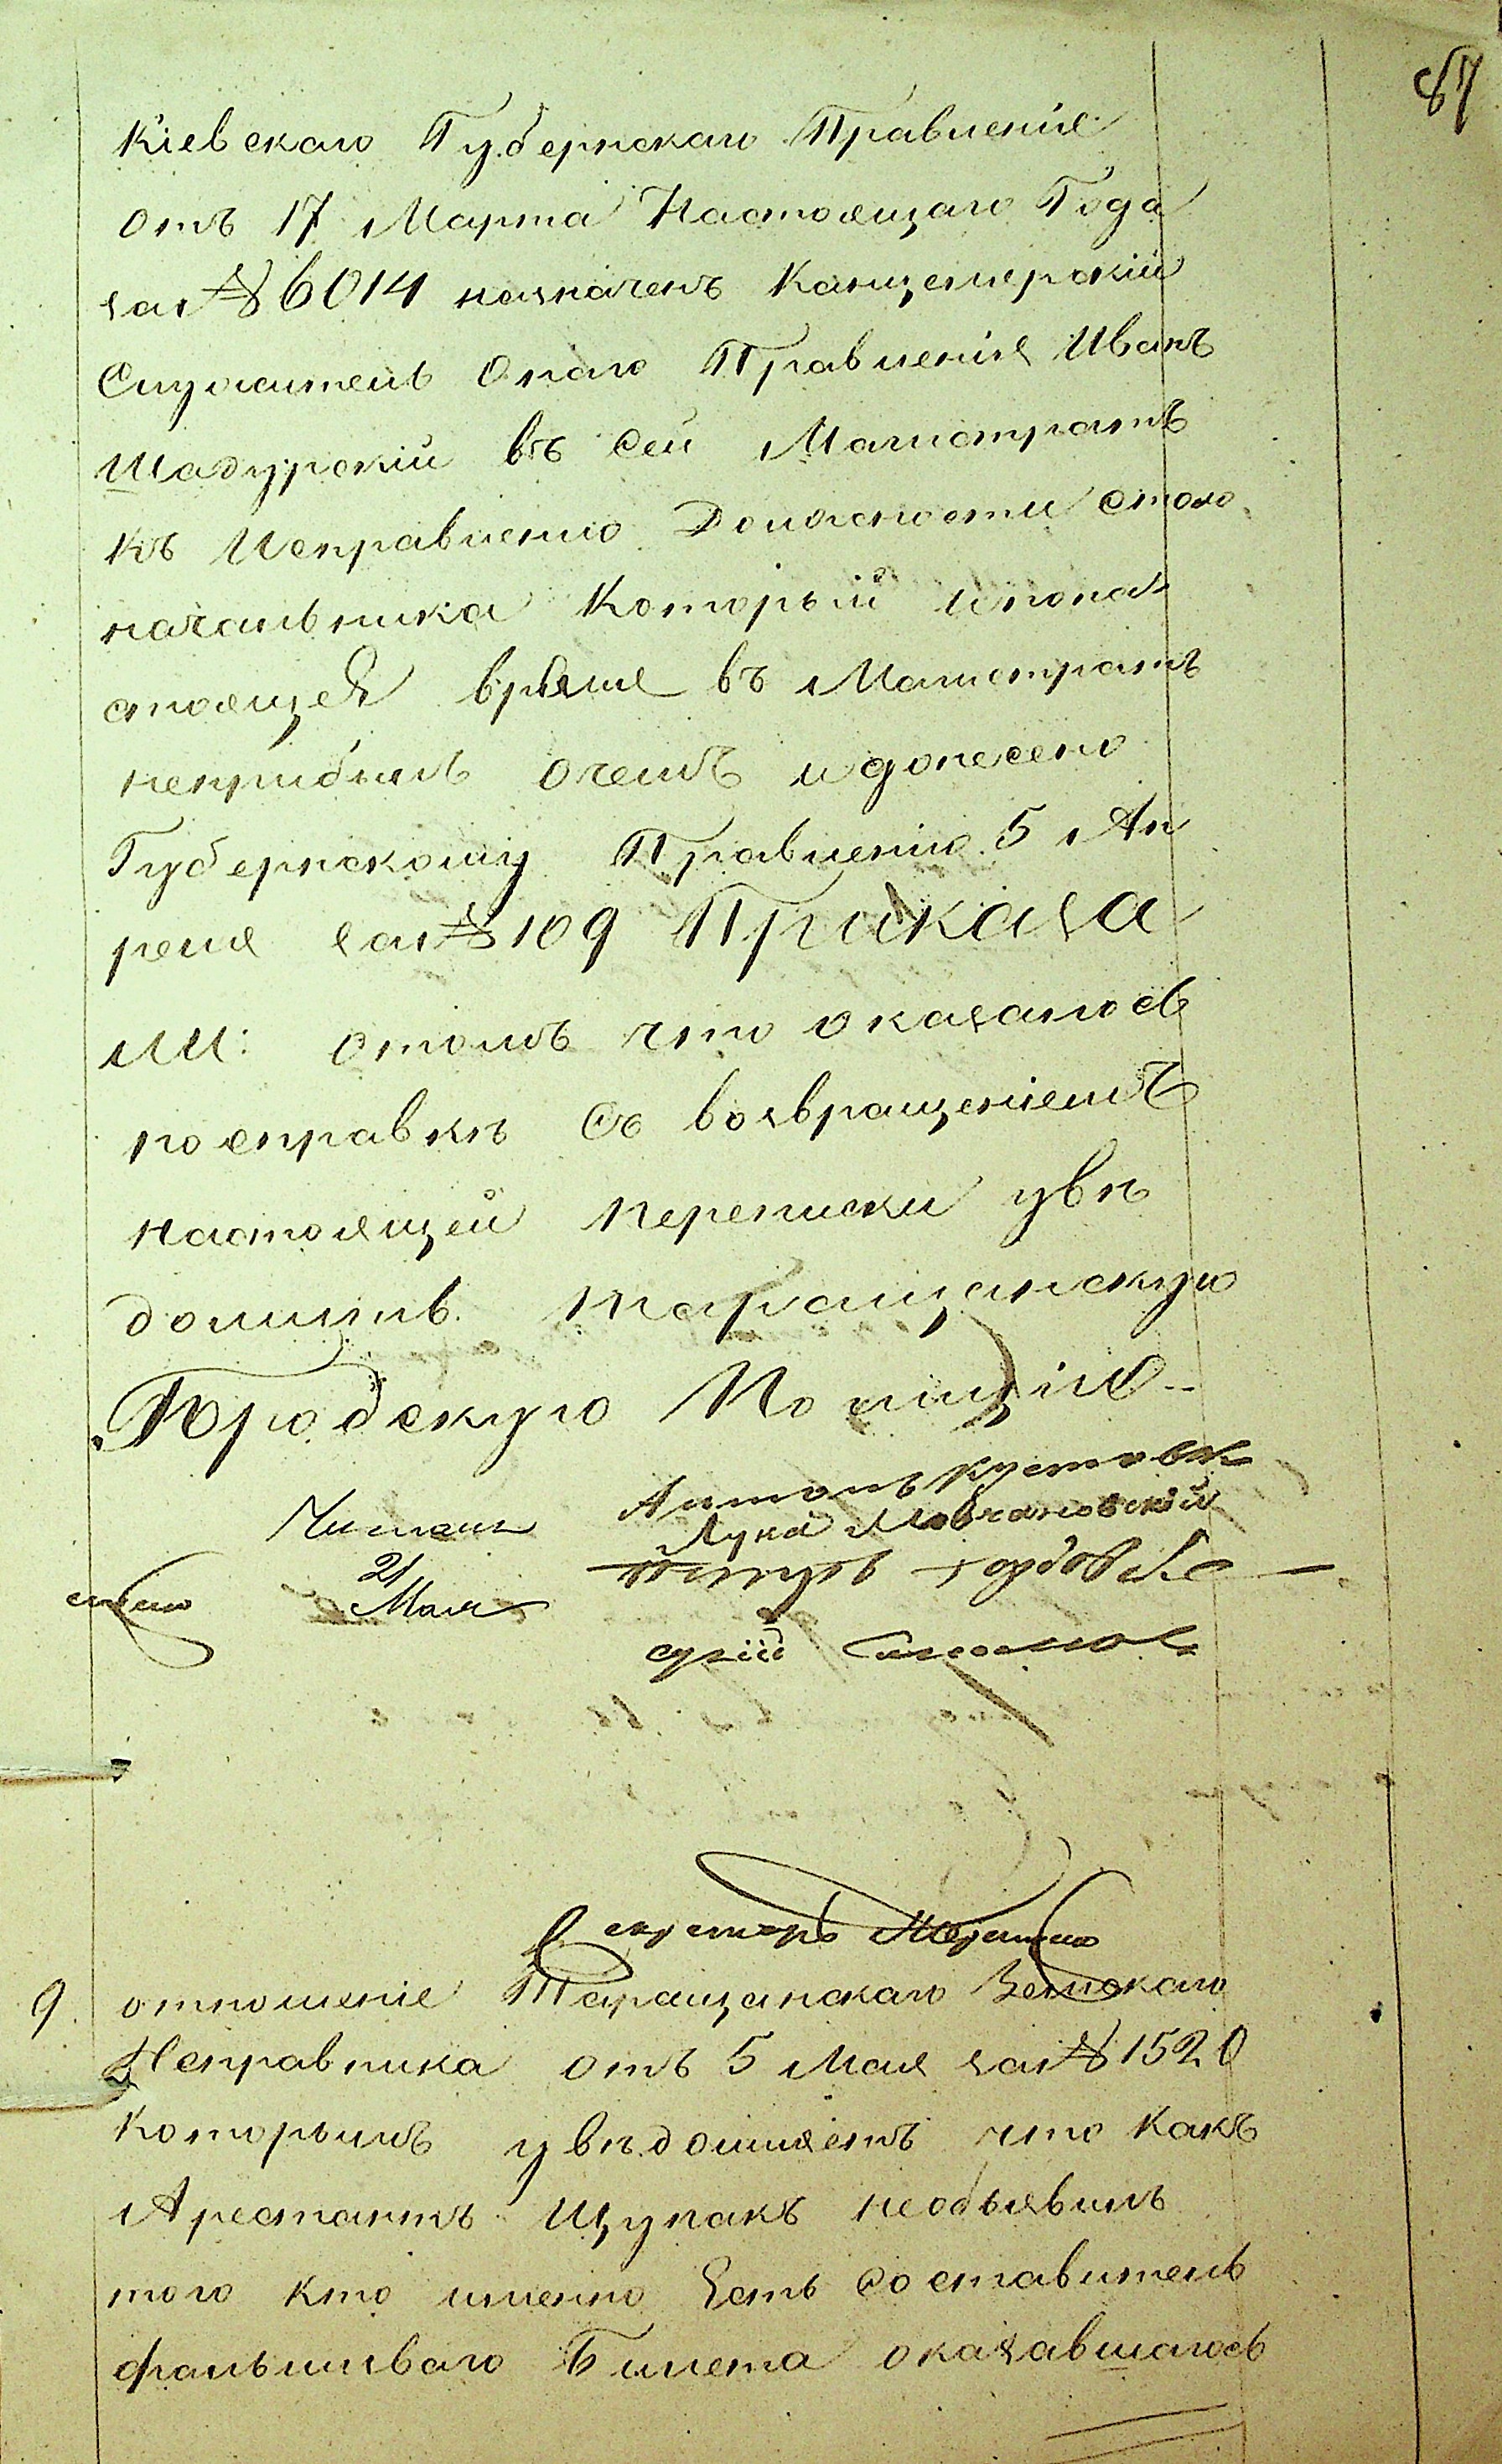 87
Кіевскаго Губернскаго Правленія
отъ 17 Марта Настоящаго Года
за № 6014 назначенъ Канцелярскій
Служитель Онаго Правленія Иванъ
Шадурскій въ Сей Магистратъ
къ Исправленію Должности Столо
начальника Который и пона
стоящея время въ Магистратъ
неприбылъ очемъ и донесено
Губернскому Правленію 5 Ап
реля за № 109 Приказа
ли: отомъ что оказалось
посправкѣ Съ возвращеніемъ
настоящей переписки увѣ
домить Таращанскую
Городскую Полицію
Антонъ Кустовск
Читалъ
Лука Молчановскій
21
Мая
Секретарь
9. отношеніе Таращанскаго Земскаго
Исправника отъ 5 Мая за № 1520
Которымъ увѣдомляетъ что Какъ
Арестантъ Щупакъ необъявилъ
того кто именно Есть Составитель
фальшиваго Билета оказавшагось